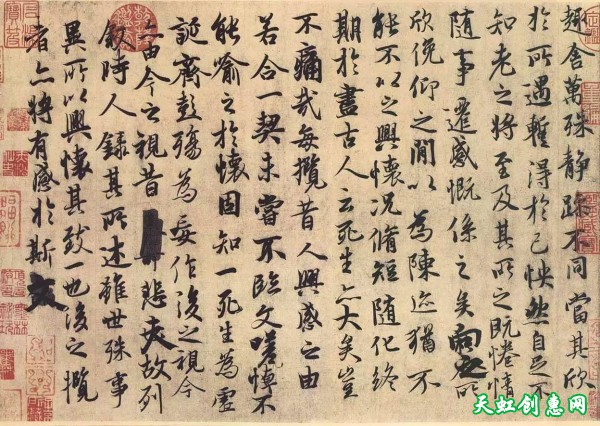 趣舍萬殊静躁不同當其欣
於所遇蹔得於己怏然自足不
知老之將至及其所之既惓情
隨事遷感慨係之矣向之所
欣俛仰之閒以為陳迹猶不
能不以之興懷況脩短隨化終
期於盡古人云死生亦大矣豈
不痛哉每攬昔人興感之由
若合一契未嘗不臨文嗟悼不
能喻之於懷固知一死生為虛
誕齊彭殤為妄作後之視今
亦由今之視昔悲夫故列
敘時人錄其所述雖世殊事
異所以興懷其致一也後之攬
者亦將有感於斯文
天虹创惠网